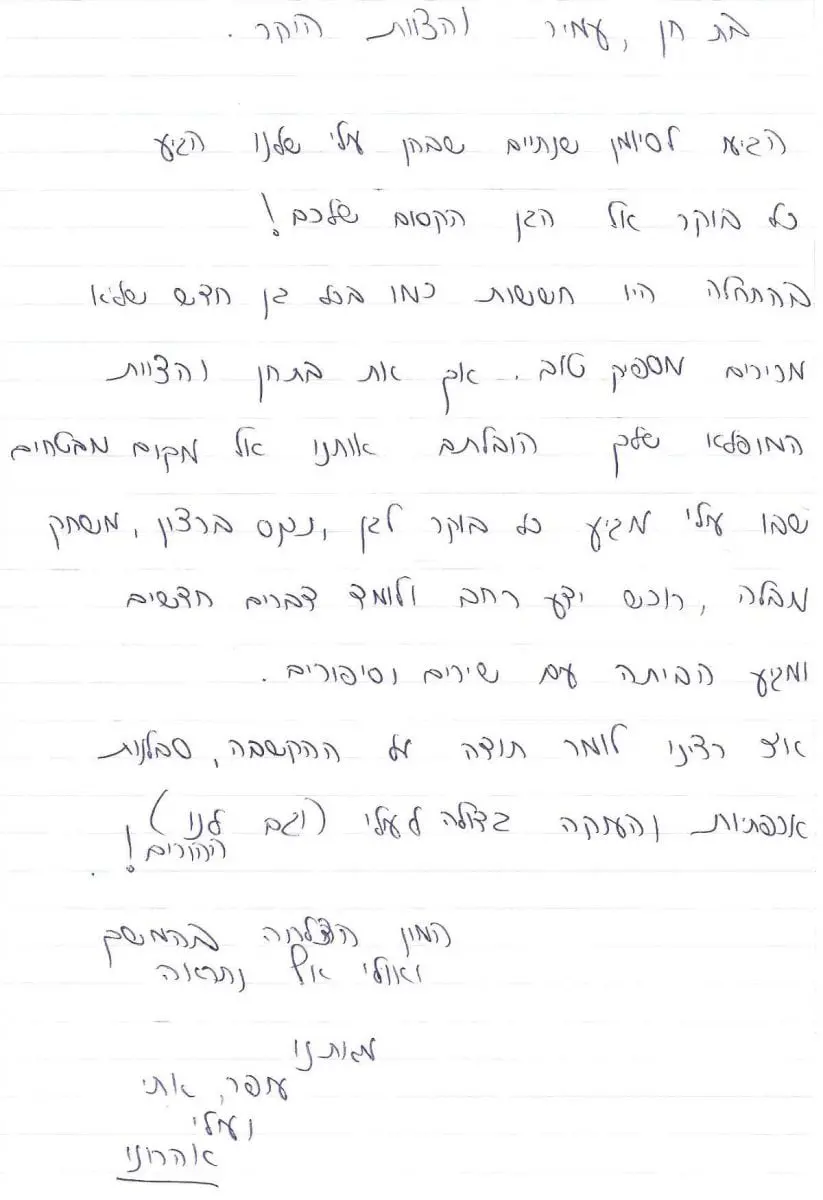 בת חן, עמיר והצוות היקר.
הגיעו לסיומן שנתיים שבהן עלי שלנו הגיע
כל בוקר אל הגן הקסום שלכם!
בהתחלה היו חששות כמו בכל גן חדש שלא
מכירים מספיק טוב. אך את בתחן והצוות
המופלא שלך הובלתם אותנו אל מקום מבטחים
שבו עלי מגיע כל בוקר לגן, נכנס ברצון, משחק
מבלה, רוכש ידע רחב ולומד דברים חדשים
ומגיע הביתה עם שירים וסיפורים.
אז רצינו לומר תודה על ההקשבה, סבלנות
אכפתיות והענקה גדולה לעלי (וגם לנו)
ההורים!
המון הצלחה בהמשך
ואולי אף נתראה
מאיתנו
עפר, אתי
ועלי
אהרוני